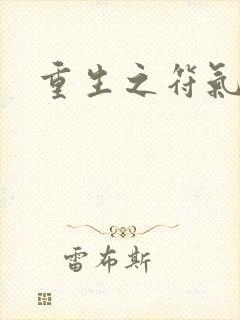 重生之符氣
雷布斯